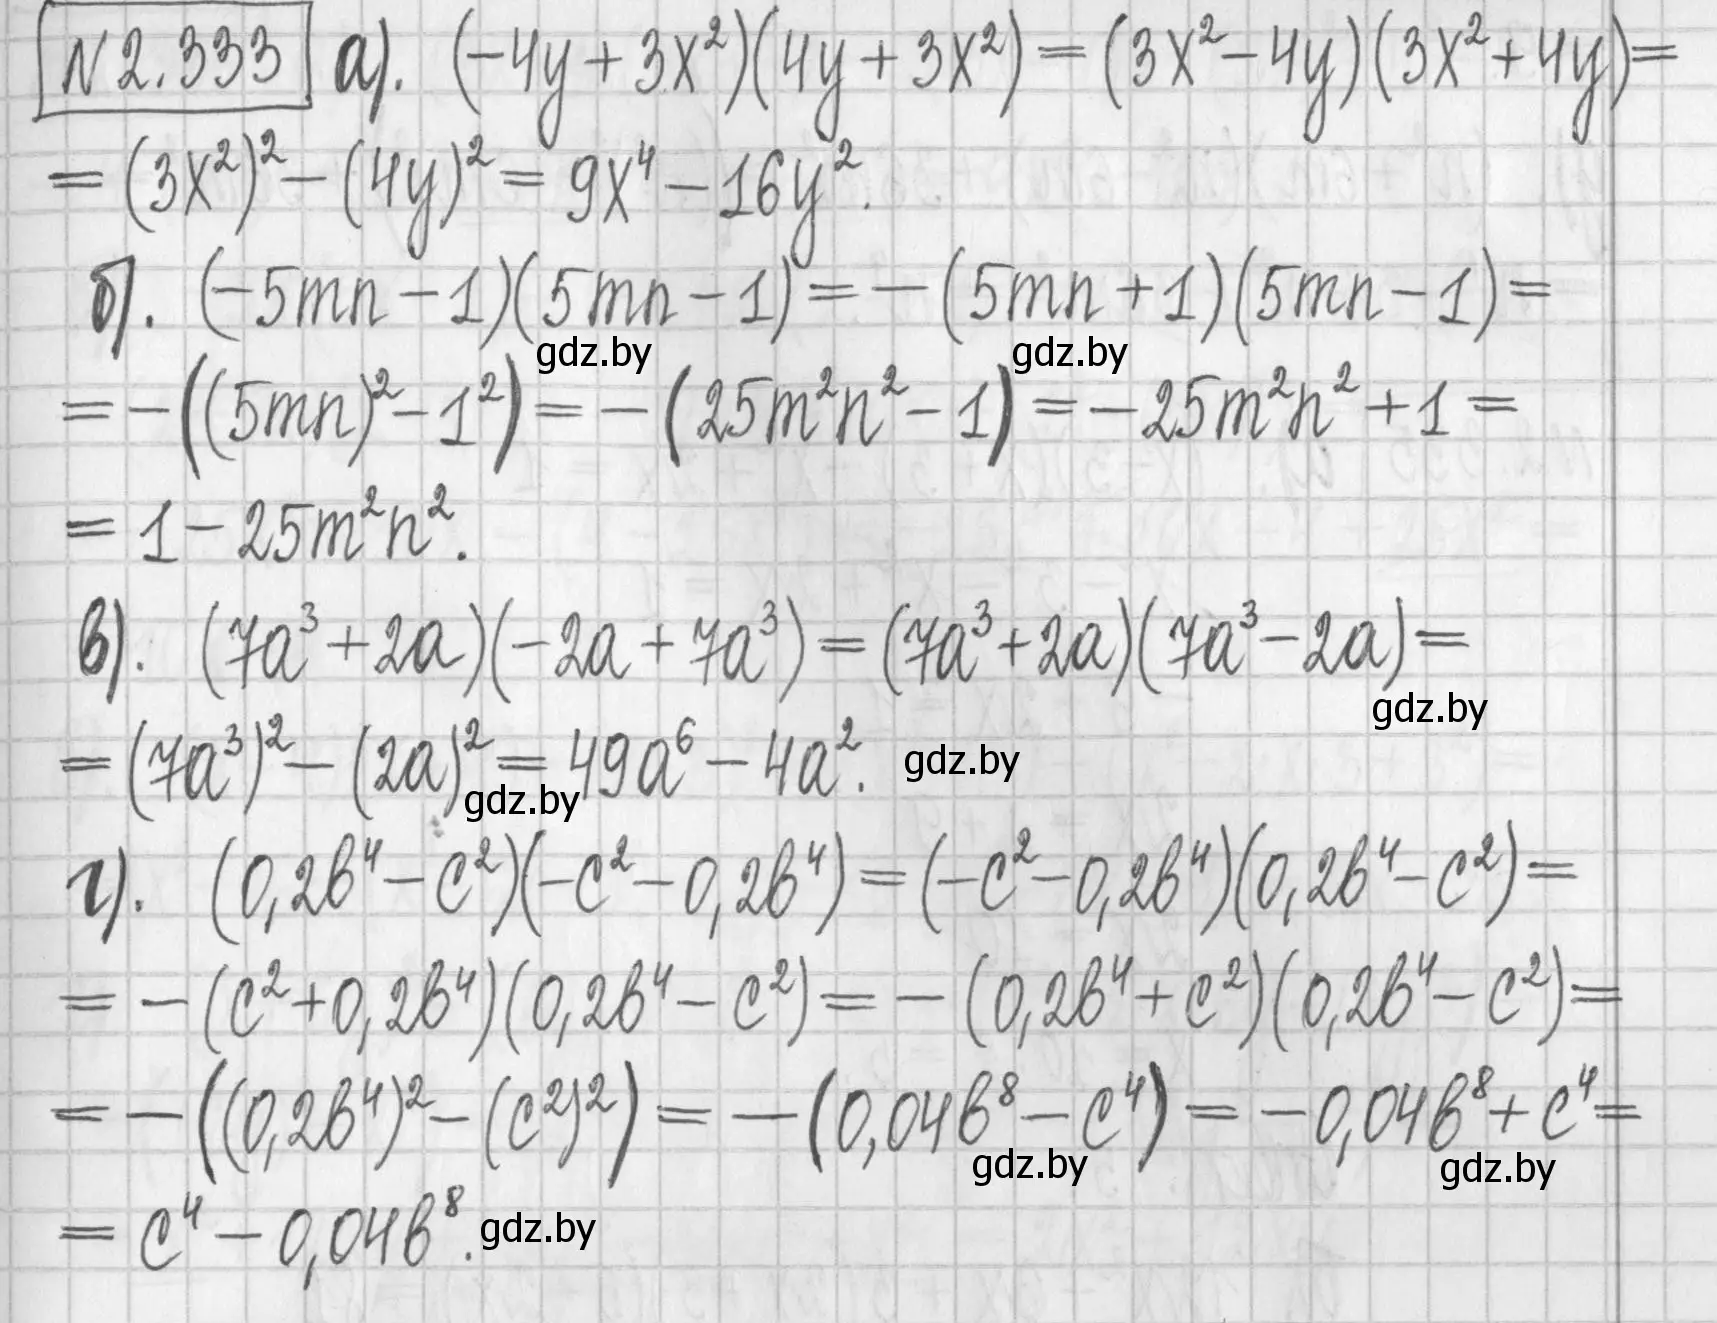 N 2.333 а). (-4y + 3x²)(4y + 3x²) = (3x² - 4y)(3x² + 4y) =
= (3x²)² - (4y)² = 9x⁴ - 16y².
б). (-5mn - 1)(5mn - 1) = -(5mn + 1)(5mn - 1) =
gdz.by gdz.by
= -((5mn)² - 1²) = -(25m²n² - 1) = -25m²n² + 1 =
= 1 - 25m²n².
в). (7a³ + 2a)(-2a + 7a³) = (7a³ + 2a)(7a³ - 2a) =
gdz.by
= (7a³)² - (2a)² = 49a⁶ - 4a². gdz.by
gdz.by
г). (0,2b⁴ - c²)(-c² - 0,2b⁴) = (-c² - 0,2b⁴)(0,2b⁴ - c²) =
= -(c² + 0,2b⁴)(0,2b⁴ - c²) = -(0,2b⁴ + c²)(0,2b⁴ - c²) =
= -((0,2b⁴)² - (c²)²) = -(0,04b⁸ - c⁴) = -0,04b⁸ + c⁴ =
gdz.by gdz.by
= c⁴ - 0,04b⁸. gdz.by